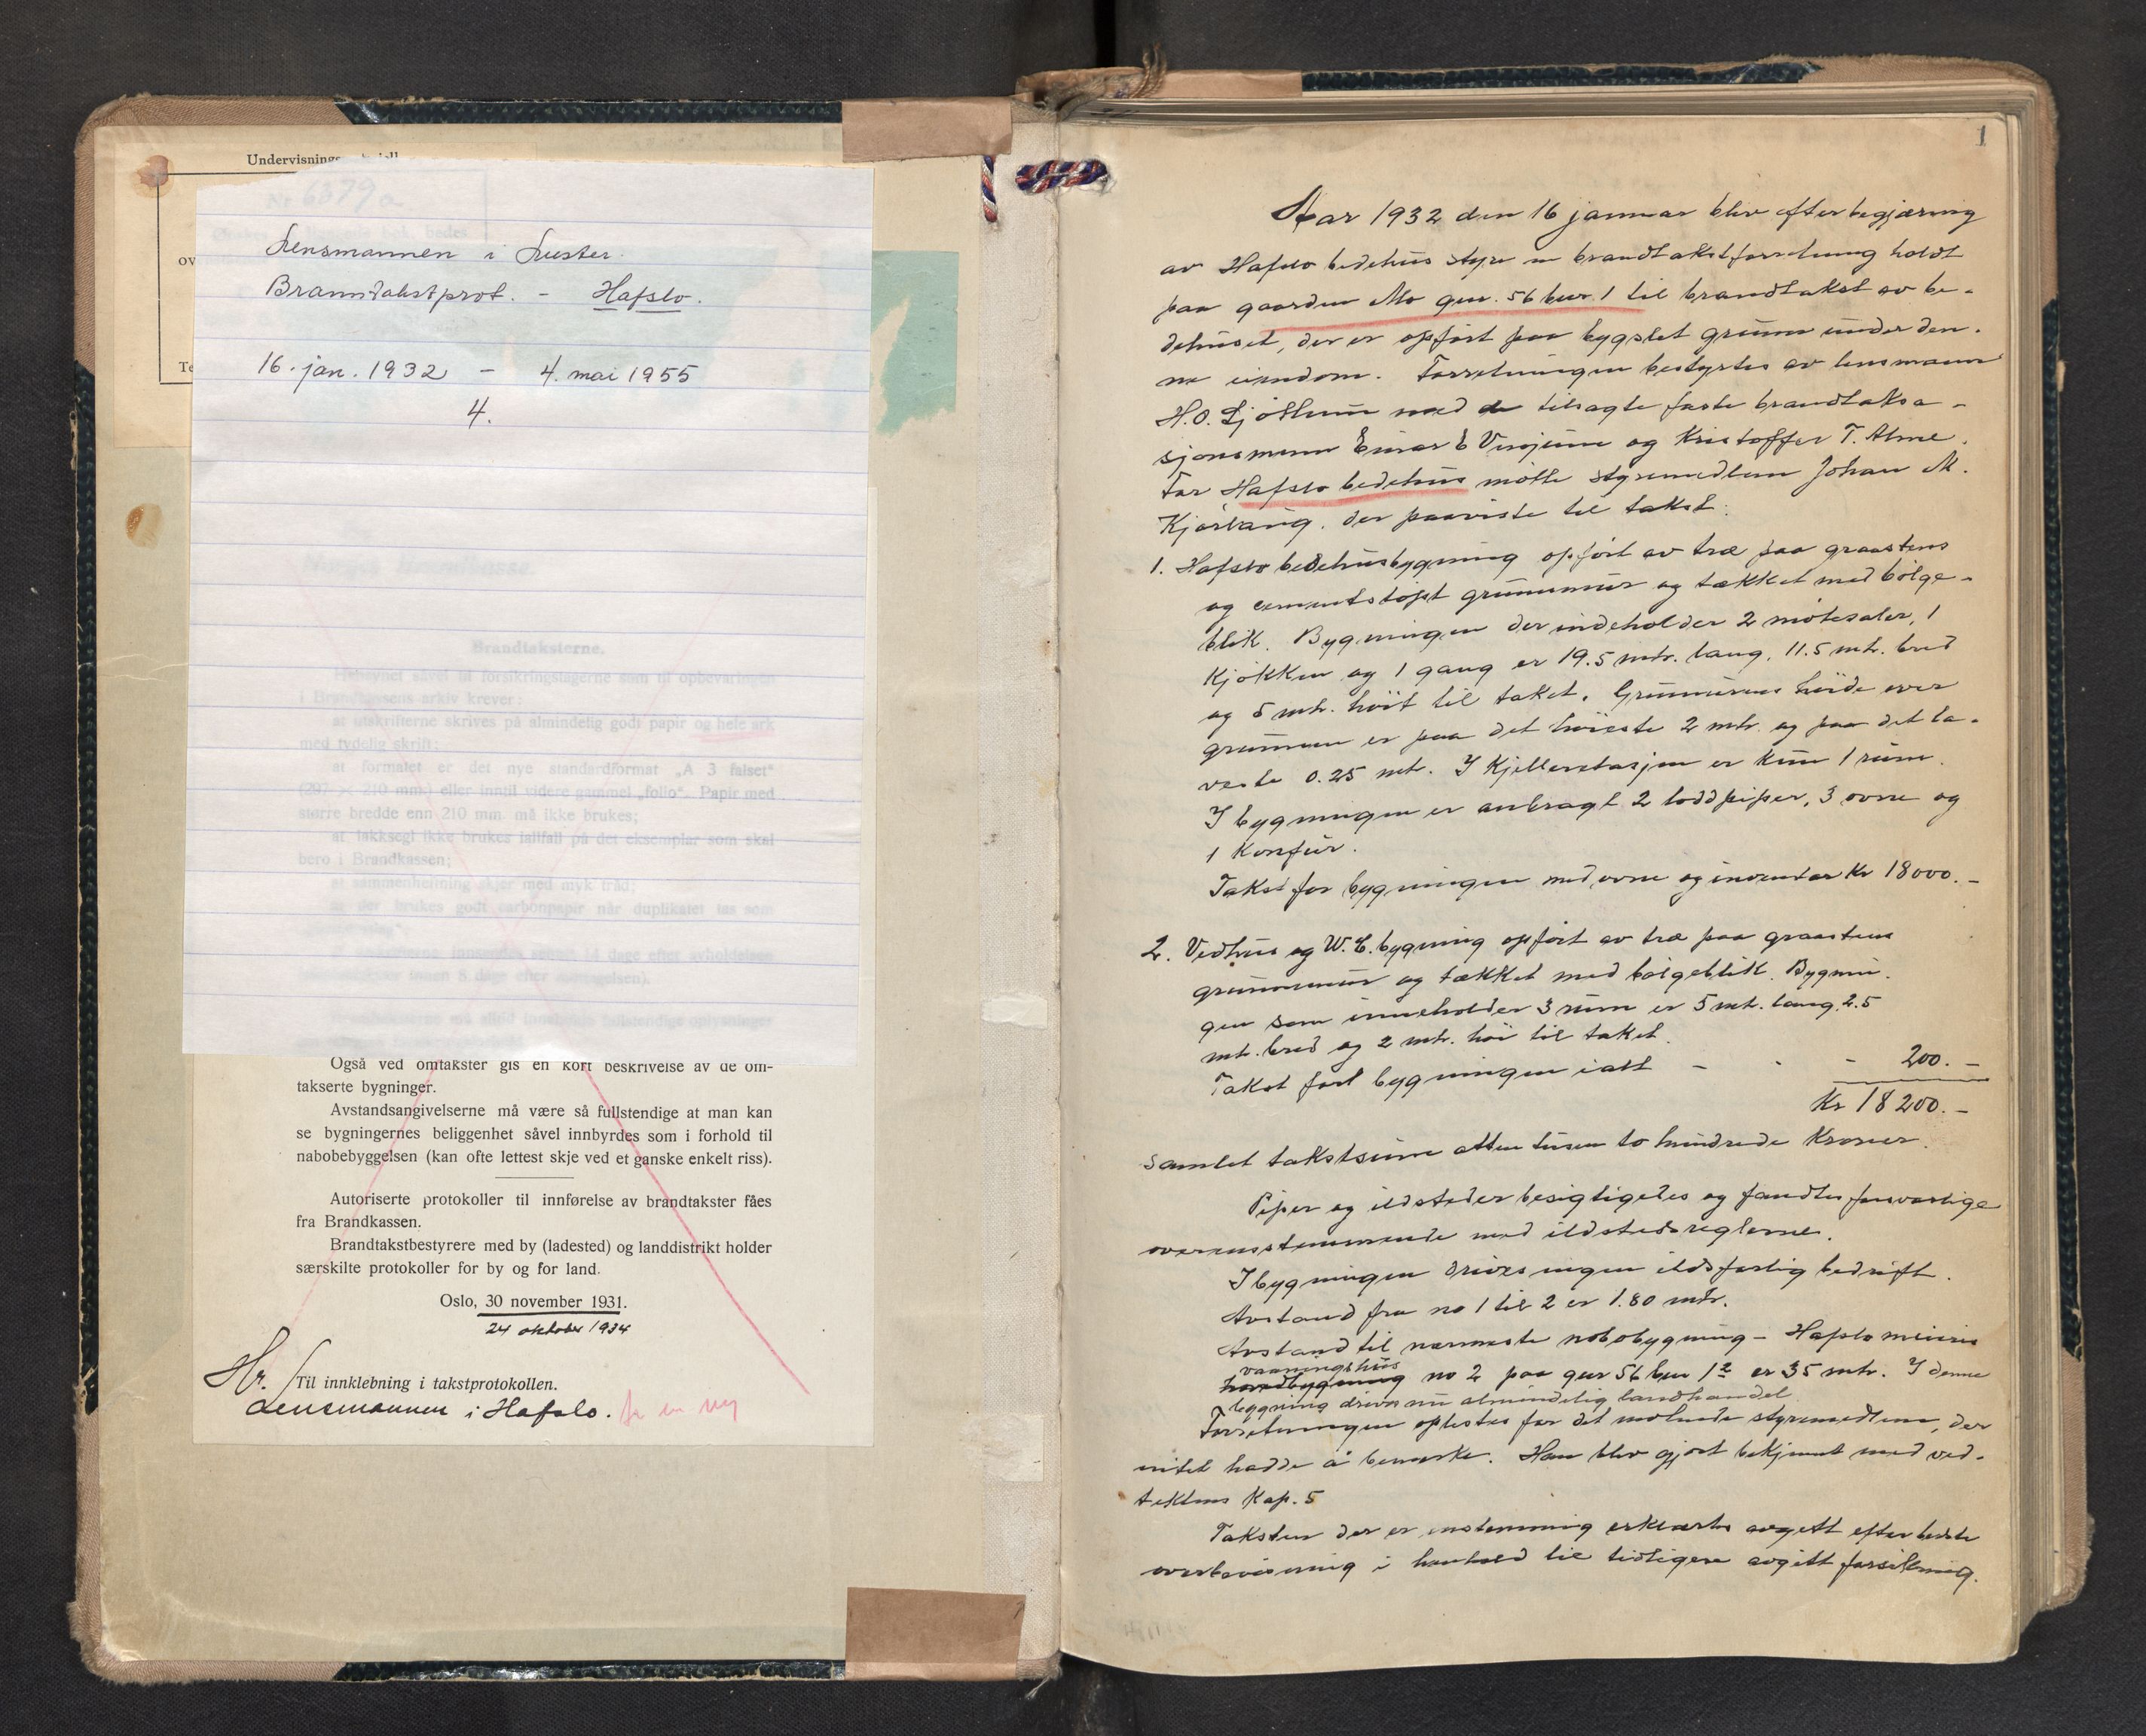 Undervisnings
Nr 6379 a
ov
Te
Lensmannen i Luster.
Branntakstprot. - Hafslo.
16. jan. 1932 - 4. mai 1955
4.
Norges Brandkasse.
Brandtaksterne.
Hensynet såvel til forsikringstagerne som til opbevaringen
i Brandkassens arkiv krever:
at utskrifterne skrives på almindelig godt papir og hele ark
med tydelig skrift;
at formatet er det nye standardformat „A 3 falset“
(297 × 210 mm.) eller inntil videre gammel „folio“. Papir med
større bredde enn 210 mm. må ikke brukes;
at lakksegl ikke brukes iallfall på det eksemplar som skal
bero i Brandkassen;
at sammenheftning skjer med myk tråd;
at der brukes godt carbonpapir når duplikatet tas som
14 dage efter avholdelsen
innen 8 dage efter
må alltid fullstendige oplysninger
Også ved omtakster gis en kort beskrivelse av de om-
takserte bygninger.
Avstandsangivelserne må være så fullstendige at man kan
se bygningernes beliggenhet såvel innbyrdes som i forhold til
nabobebyggelsen (kan ofte lettest skje ved et ganske enkelt riss).
Autoriserte protokoller til innførelse av brandtakster fåes
fra Brandkassen.
Brandtakstbestyrere med by (ladested) og landdistrikt holder
særskilte protokoller for by og for land.
Oslo, 30 november 1931.
24 oktober 1934
Til innklebning i takstprotokollen.
Hr.
Lensmannen i Hafslo. før en ny
1
Aar 1932 den 16 januar blev efter begjæring
av Hafslo bedehus styre en brandtakstforretning holdt
paa gaarden Mo gnr. 56 bnr. 1 til brandtakst av be-
dehuset, der er opført paa bygslet grunn under den-
ne eiendom. Forretningen bestyrtes av lensmann
H.O. Sjøthun med de tilsagte faste brandtaksa-
sjonsmenn Einar E Venjum og Kristoffer T. Alme.
For Hafslo bedehus møtte styremedlem Johan M.
Kjørlaug, der paaviste til takst:
1. Hafslo bedehusbygning opført av træ paa graastens
og cementstøpt grunnmur og tækket med bølge-
blik. Bygningen der indeholder 2 møtesaler, 1
kjøkken og 1 gang er 19.5 mtr. lang, 11.5 mtr. bred
og 5 mtr. høit til taket. Grunmurens høide over
grunnen er paa det høieste 2 mtr. og paa det la-
veste 0.25 mtr. I kjelleretasjen er kun 1 rum.
I bygningen er anbragt 2 loddpiper, 3 ovne og
1 komfur.
Takst for bygningen med ovne og inventar Kr 18000.-
2. Vedhus og W.C. bygning opført av træ paa graastens
grunnmur og tækket med bølgeblik. Bygnin-
gen som inneholder 3 rum er 5 mtr. lang, 2.5
mtr. bred og 2 mtr. høi til taket.
Takst for bygningen i alt - - - 200.-
Kr 18200.-
Samlet takstsum atten tusen to hundrede kroner.
Piper og ildsteder besigtigedes og fandtes forsvarlige
overensstemmende med ildstedsreglerne.
I bygningen drives ingen ildsfarlig bedrift.
Avstand fra no 1 til 2 er 1.80 mtr.
Avstand til nærmeste nabobygning - Hafslo meieris
vaaningshus
hovedbygning no 2 paa gnr 56 bnr 12 er 35 mtr. I denne
bygning drives nu almindelig landhandel
Forretningen oplestes for det møtende styremedlem, der
intet hadde å bemerke. Han blev gjort bekjennt med ved-
tektens Kap. 5
Taksten der er enstemmig erklærtes avgitt efter beste
overbevisning i henhold til tidligere avgitt forsikring.